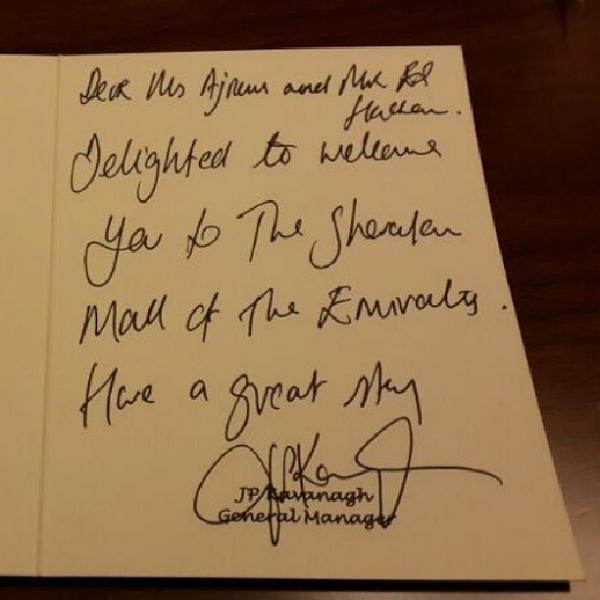 Dear Ms and Mr
Delighted to welcome
You to The Sheraton
Mall of The Emirates.
Have a great stay
JP Kavanagh
General Manager